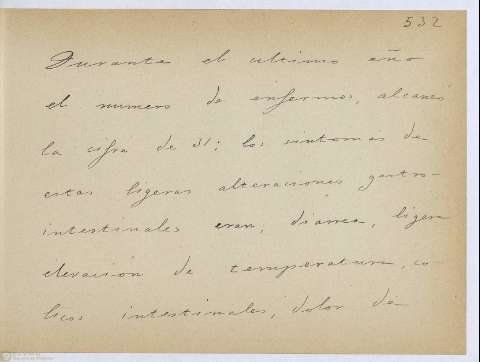 532
Durante el ultimo año
el numero de enfermos, alcanzó
la cifra de 31; los sintomas de
estas ligeras alteraciones gastro-
intestinales eran, diarrea, ligera
elevación de temperatura, co-
licos intestinales, dolor de